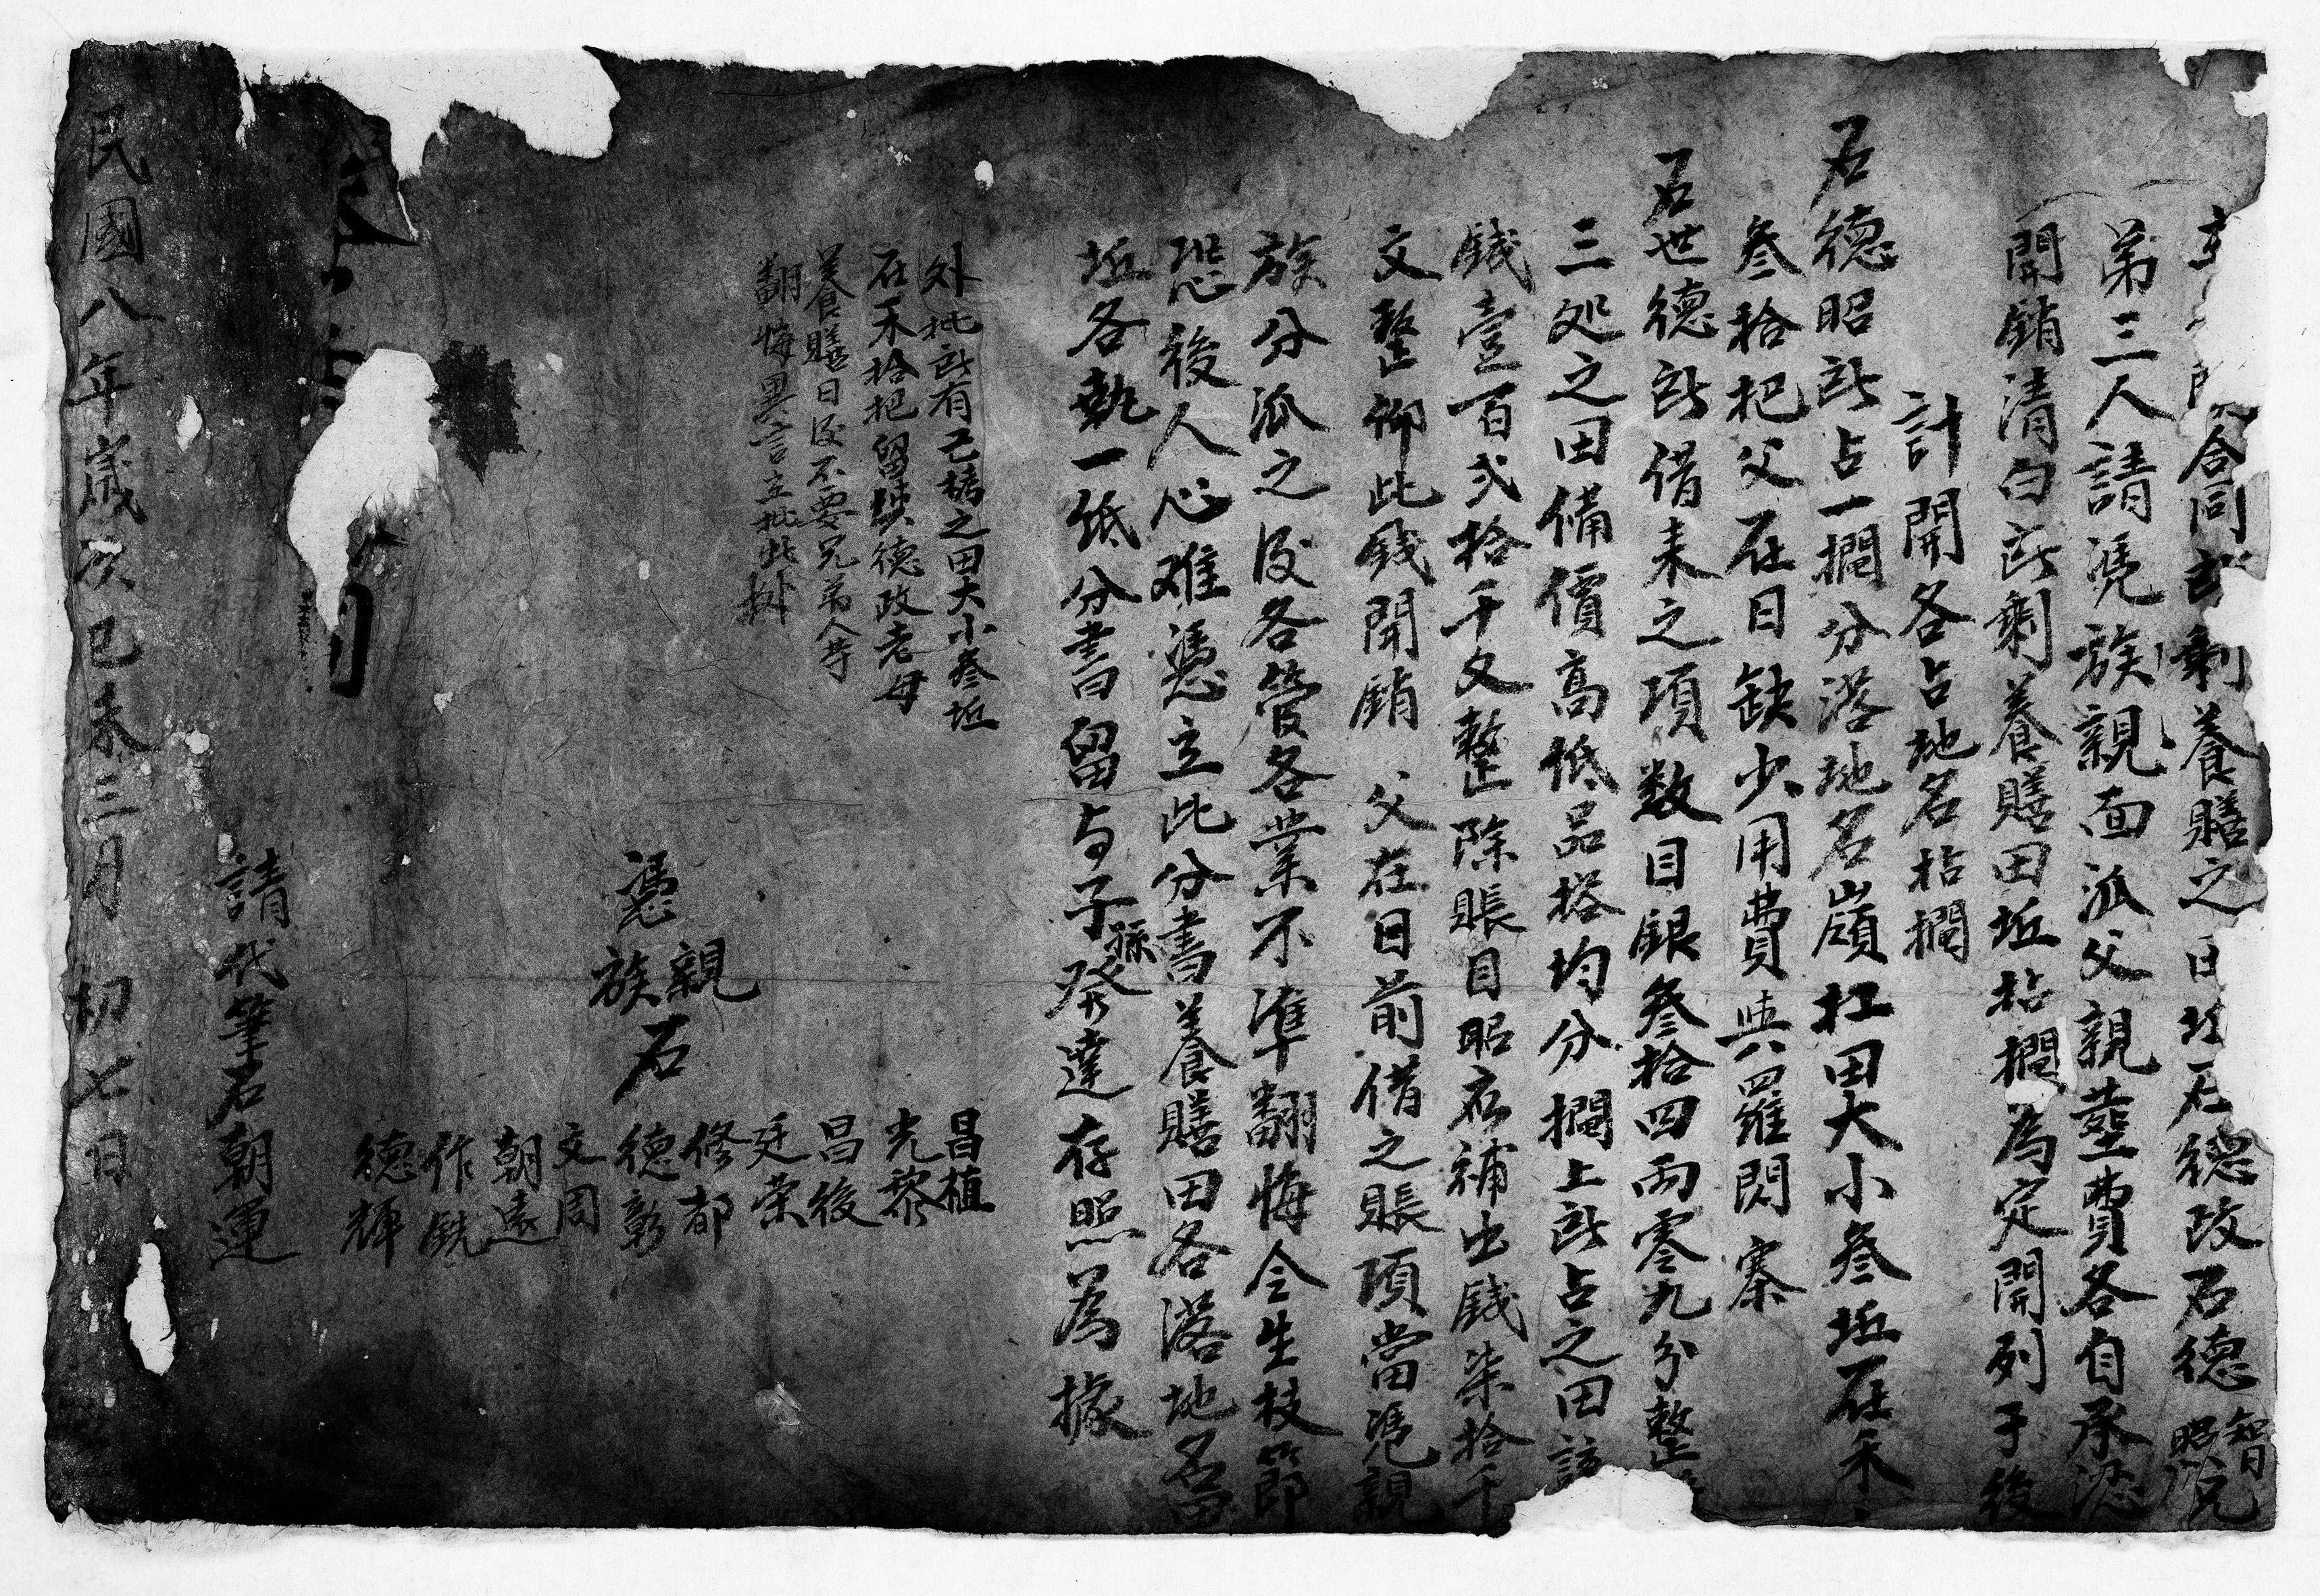 合同 剩養膳之田坵石德政石德智昭兄
弟三人請凴族親面派父親塟費各自承認
開銷清白所剩養膳田坵拈擱為定開列于後
計開各占地名拈擱
石德昭所占一擱分落地名嶺扛田大小叁坵在禾
叁拾把父在日缺少用費與八羅閃寨
石世德所借来之項数目銀叁拾四両零九分整
三処之田備價高低品搭均分擱上所占之田該
錢壹百弍拾千文整除賬目昭名補出錢柒拾千
文整仰此錢開銷 父在日前借之賬項當凴親
族分派之後各管各業不準翻悔今生枝節
恐後人心难憑立此分書養膳田各落地名畨
坵各執一紙分書留与子孫發達存照為據
外批所有己構之田大小叁坵
在禾拾把留與德政老母
養膳日後不要兄弟人等
翻悔異言立批此據
憑親族石
昌植
光黎
昌後
廷荣
修都
德彰
文周
朝遠
作銑
德輝
請代筆石朝運
民國八年歲次己未三月初七日